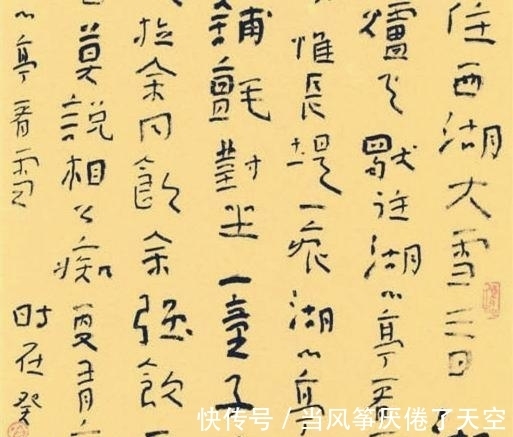 住西湖大雪三日
爐火獨往湖心亭看
惟長堤一痕湖心亭
鋪氈對坐一童子
拉余同飲余强飲
曰莫說相公痴更有
心亭看雪 时在癸
快传号 / 当风筝厌倦了天空